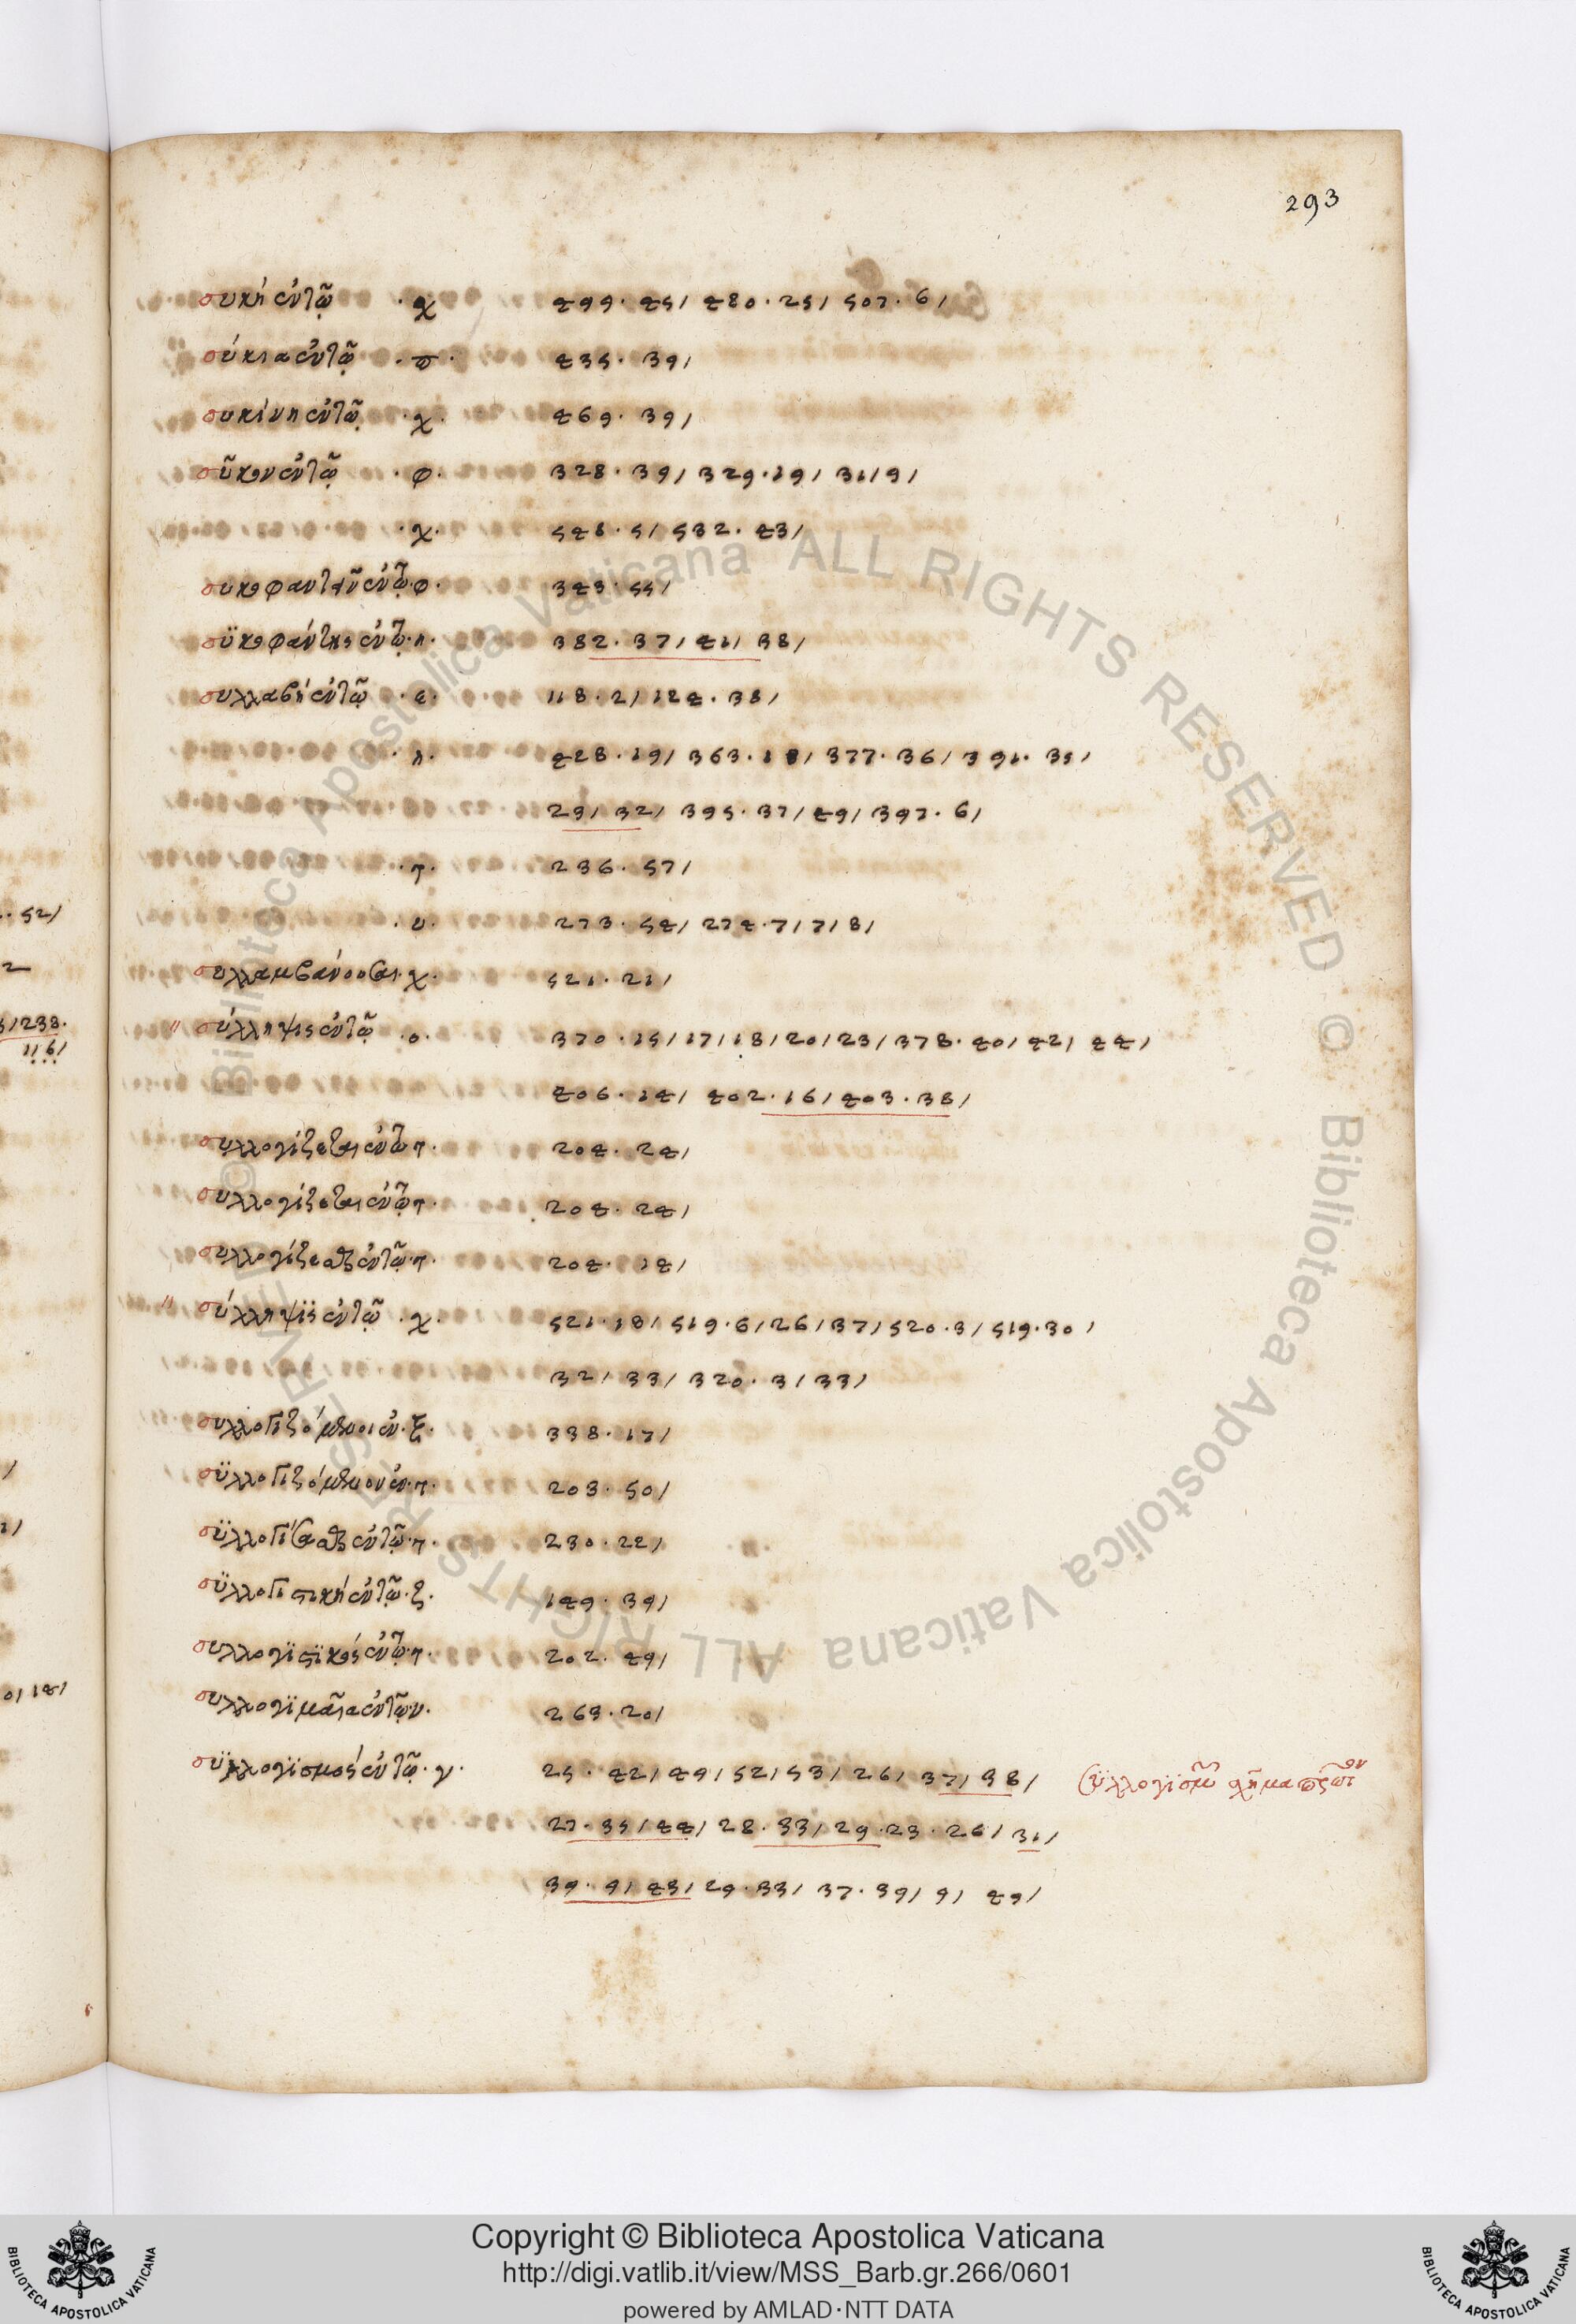 293
συκῆ ἐν τῷ · χ 499 · 45 / 480 · 25 / 507 · 6 /
σύκια ἐν τῷ · π · 435 · 39 /
συκίνη ἐν τῷ · χ · 469 · 39 /
σῦκον ἐν τῷ · φ · 328 · 39 / 329 · 19 / 31 / 9 /
· χ · 548 · 5 / 532 · 43 /
συκοφαντῶν ἐν τῷ · φ · 343 · 55 /
σϋκοφάντης ἐν τῷ · η · 382 · 37 / 41 / 38 /
συλλαβὴ ἐν τῷ · ε · 118 · 2 / 124 · 38 /
· η · 428 · 19 / 363 · 18 / 377 · 36 / 391 · 35 /
29 / 32 / 395 · 37 / 49 / 397 · 6 /
· τ · 236 · 57 /
· υ · 273 · 54 / 274 · 7 / 7 / 8 /
συλλαμβάνουσαι · χ · 521 · 21 /
" σύλληψις ἐν τῷ · ο · 370 · 15 / 17 / 18 / 20 / 23 / 378 · 40 / 42 / 44 /
406 · 14 / 402 · 16 / 403 · 38 /
συλλογίζεται ἐν τῷ τ · 204 · 24 /
συλλογίζεται ἐν τῷ τ · 204 · 24 /
συλλογίζεσθαι ἐν τῷ · τ · 204 · 14 /
" σύλληψϊς ἐν τῷ · χ · 521 · 18 / 519 · 6 / 26 / 37 / 520 · 3 / 519 · 30 /
32 / 33 / 320 · 3 / 33 /
συλλογιζόμενοι ἐν · ξ · 338 · 17 /
σϋλλογιζόμενον ἐν · τ · 203 · 50 /
σϋλλογίσασθαι ἐν τῷ · τ · 230 · 22 /
σϋλλογιστικὴ ἐν τῷ · ζ · 149 · 39 /
συλλογϊστϊκὸς ἐν τῷ · τ · 202 · 49 /
συλλογϊμαῖα ἐν τῷ · ν · 263 · 20 /
σϋλλογϊσμὸς ἐν τῷ · γ · 25 · 42 / 49 / 52 / 53 / 26 / 37 / 38 / σϋλλογϊσμοῦ σχῆμα πρῶτον
27 · 35 / 44 / 28 · 33 / 29 · 23 · 26 / 31 /
39 · 9 / 43 / 29 · 33 / 37 · 39 / 9 / 49 /
· 52 /
/ 238 ·
116 /
0 / 14 /
Biblioteca Apostolica Vaticana ALL RIGHTS RESERVED © Biblioteca Apostolica Vaticana ALL RIGHTS RESERVED ©
Copyright © Biblioteca Apostolica Vaticana
http://digi.vatlib.it/view/MSS_Barb.gr.266/0601
powered by AMLAD·NTT DATA
BIBLIOTECA APOSTOLICA VATICANA
BIBLIOTECA APOSTOLICA VATICANA